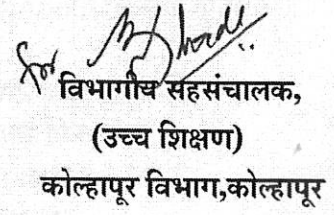 for
विभागीय सहसंचालक,
(उच्च शिक्षण)
कोल्हापूर विभाग,कोल्हापूर